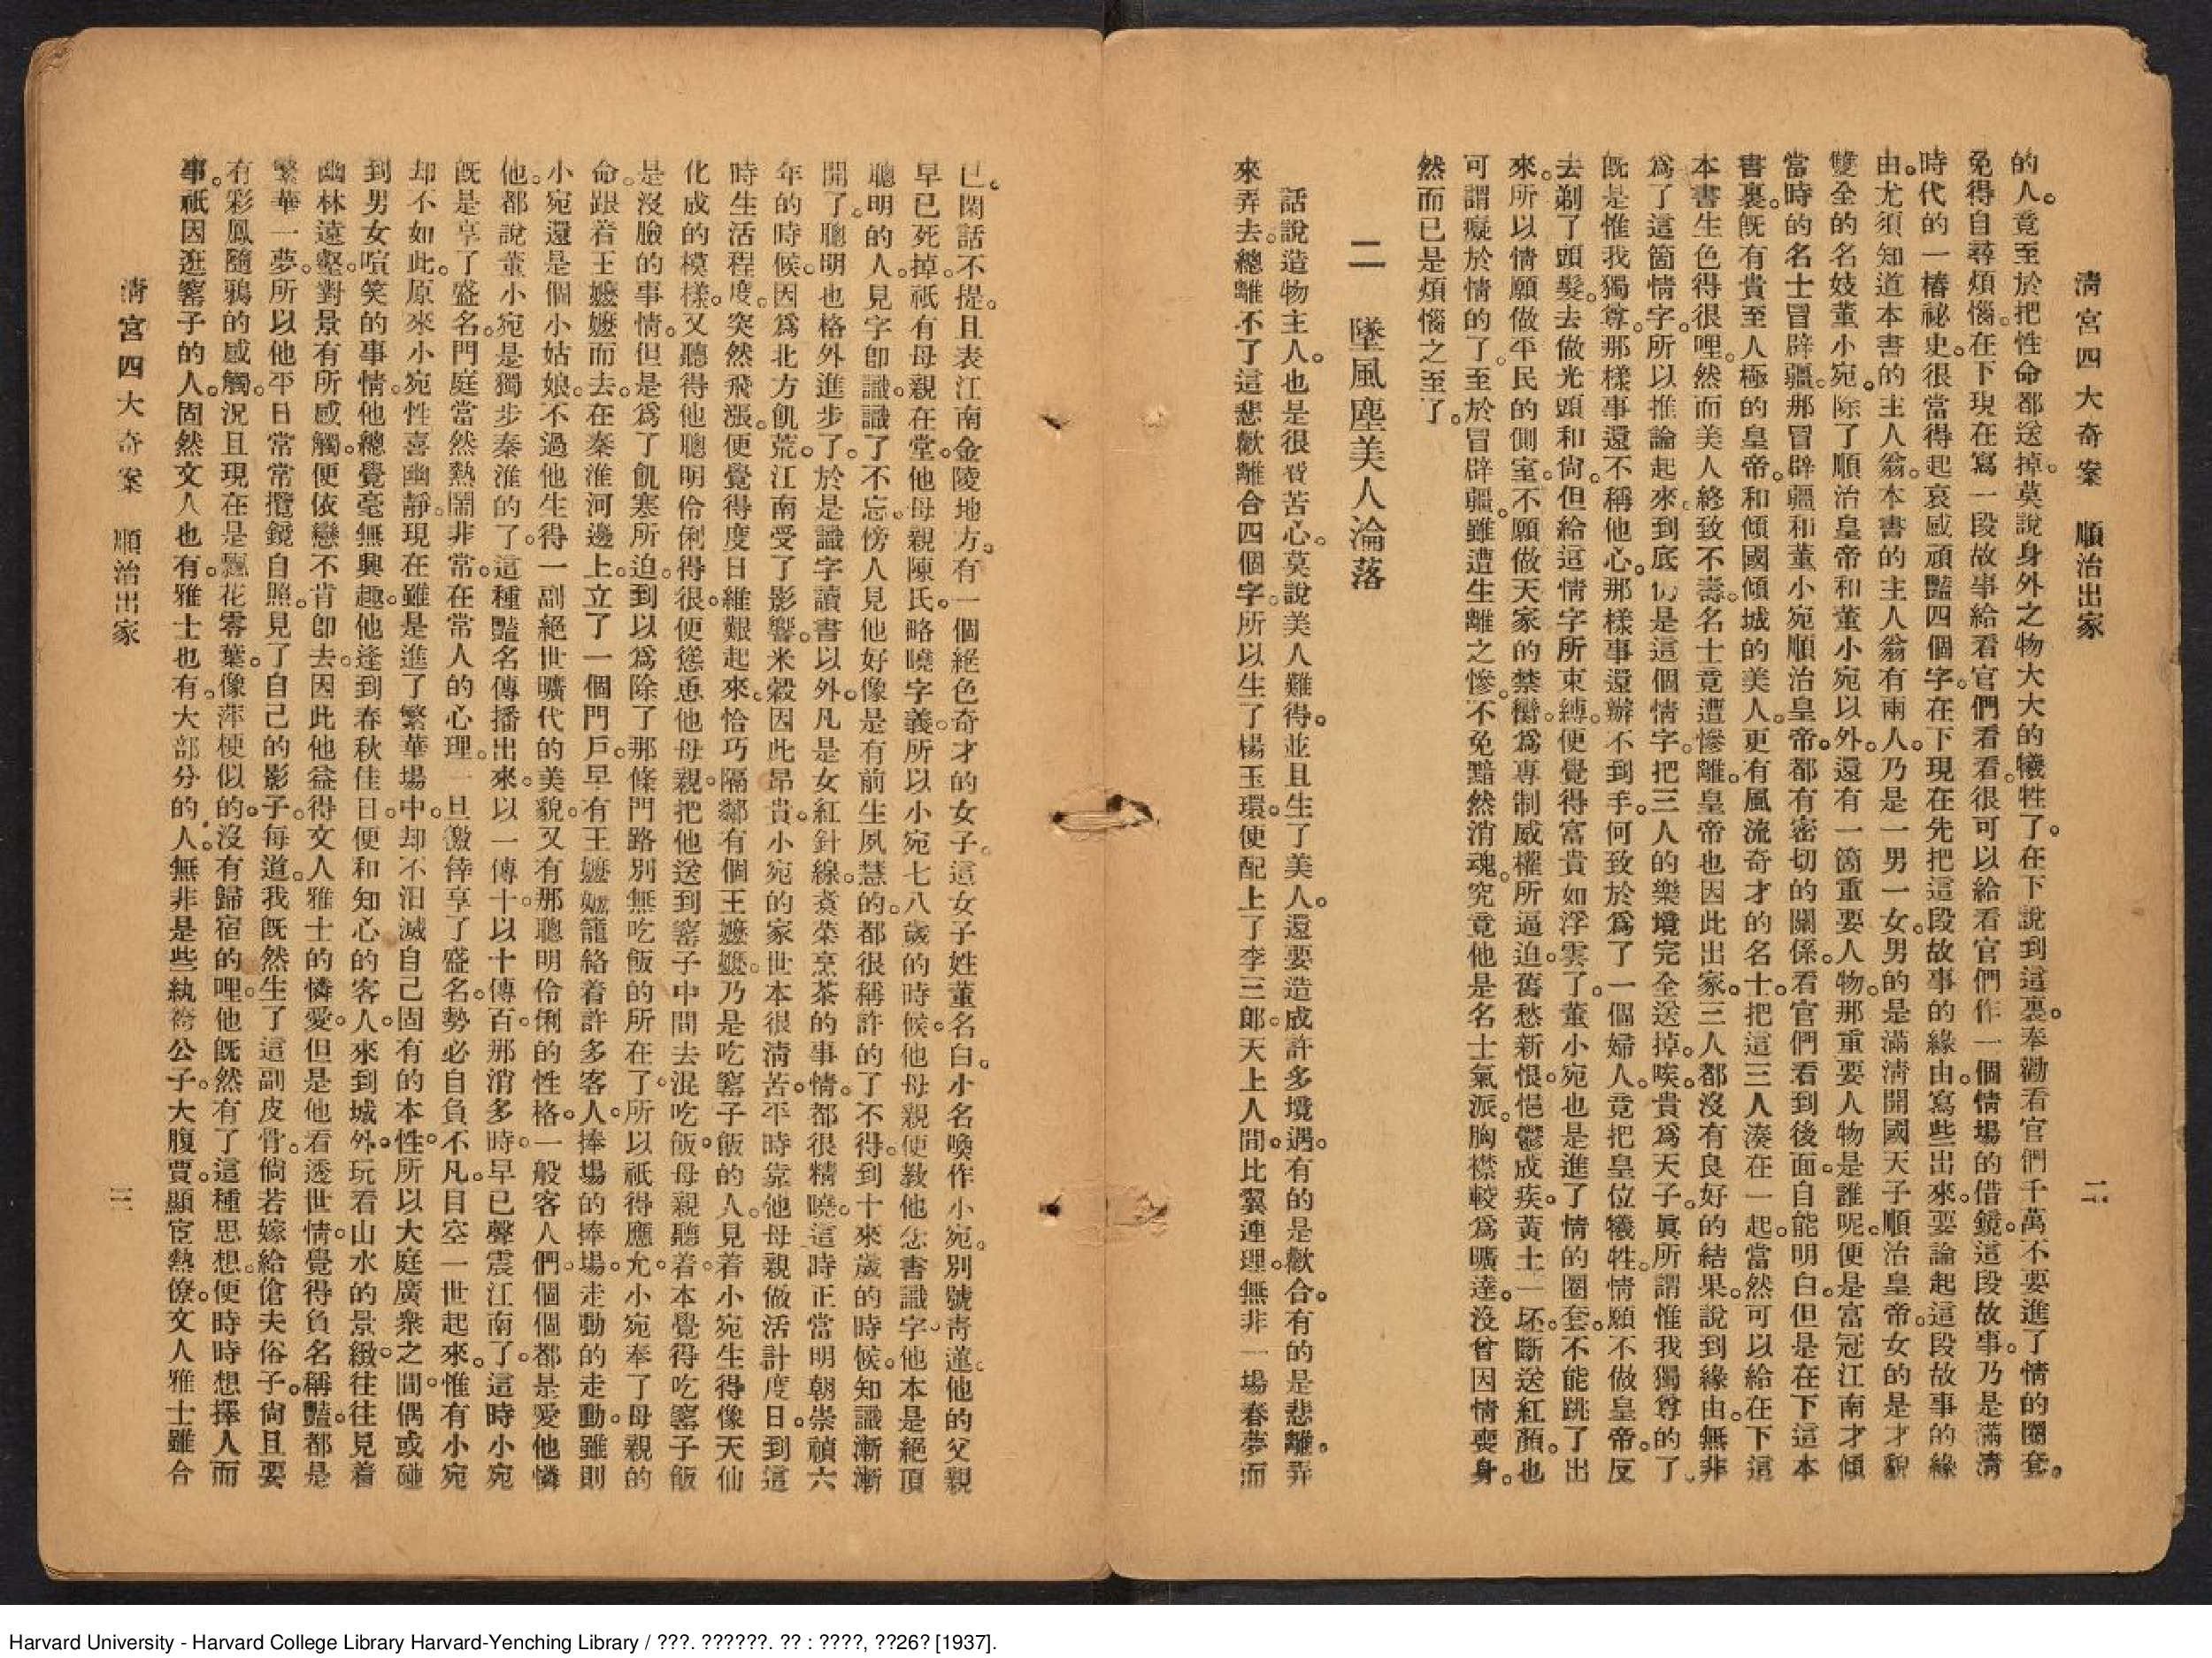 清宮四大奇案　順治出家
二
的人。竟至於把性命都送掉。莫說身外之物大大的犧牲了。在下說到這裏。奉勸看官們千萬不要進了情的圈套。
免得自尋煩惱。在下現在寫一段故事給看官們看看。很可以給看官們作一個情場的借鏡。這段故事。乃是滿清
時代的一樁祕史。很當得起哀感頑豔四個字。在下現在先把這段故事的緣由。寫些出來。要論起這段故事的緣
由。尤須知道本書的主人翁。本書的主人翁有兩人。乃是一男一女。男的是滿清開國天子順治皇帝。女的是才貌
雙全的名妓董小宛。除了順治皇帝和董小宛以外。還有一箇重要人物。那重要人物是誰呢。便是富冠江南才傾
當時的名士冒辟疆。那冒辟疆和董小宛順治皇帝。都有密切的關係。看官們看到後面。自能明白。但是在下這本
書裏。旣有貴至人極的皇帝。和傾國傾城的美人。更有風流奇才的名士。把這三人湊在一起。當然可以給在下這
本書生色得很哩。然而美人終致不壽。名士竟遭慘離。皇帝也因此出家。三人都沒有良好的結果。說到緣由。無非
爲了這箇情字。所以推論起來。到底仍是這個情字。把三人的樂境完全送掉。唉。貴爲天子。眞所謂惟我獨尊的了。
旣是惟我獨尊。那樣事還不稱他心。那樣事還辦不到手。何致於爲了一個婦人。竟把皇位犧牲。情願不做皇帝。反
去剃了頭髮。去做光頭和尙。但給這情字所束縛。便覺得富貴如浮雲了。董小宛也是進了情的圈套。不能跳了出
來。所以情願做平民的側室。不願做天家的禁臠。爲專制威權所逼迫。舊愁新恨。悒鬱成疾。黃土一坏。斷送紅顏。也
可謂癡於情的了。至於冒辟疆。雖遭生離之慘。不免黯然消魂。究竟他是名士氣派。胸襟較爲曠達。沒曾因情喪身。
然而已是煩惱之至了。
二　墜風塵美人淪落
話說造物主人。也是很費苦心。莫說美人難得。並且生了美人。還要造成許多境遇。有的是歡合。有的是悲離。弄
來弄去。總離不了這悲歡離合四個字。所以生了楊玉環。便配上了李三郎。天上人間。比翼連理。無非一場春夢而
已。閑話不提。且表江南金陵地方。有一個絕色奇才的女子。這女子姓董名白。小名喚作小宛。別號靑蓮。他的父親
早已死掉。祇有母親在堂。他母親陳氏。略曉字義。所以小宛七八歲的時候。他母親便敎他念書識字。他本是絕頂
聰明的人。見字卽識。識了不忘。傍人見他好像是有前生夙慧的。都很稱許的了不得。到十來歲的時候。知識漸漸
開了。聰明也格外進步了。於是識字讀書以外。凡是女紅針線。煮菜烹茶的事情。都很精曉。這時正當明朝崇禎六
年的時候。因爲北方飢荒。江南受了影響。米穀因此昂貴。小宛的家世本很淸苦。平時靠他母親做活計度日。到這
時生活程度。突然飛漲。便覺得度日維艱起來。恰巧隔鄰有個王嬷嬷。乃是吃窰子飯的人。見着小宛生得像天仙
化成的模樣。又聽得他聰明伶俐得很。便慫恿他母親。把他送到窰子中間去混吃飯。母親聽着。本覺得吃窰子飯
是沒臉的事情。但是爲了飢寒所迫。到以爲除了那條門路別無吃飯的所在了。所以祇得應允。小宛奉了母親的
命。跟着王嬷嬷而去。在秦淮河邊上。立了一個門戶。早有王嬷嬷籠絡着許多客人。捧場的捧場。走動的走動。雖則
小宛還是個小姑娘。不過他生得一副絕世曠代的美貌。又有那聰明伶俐的性格。一般客人們。個個都是愛他憐
他。都說董小宛是獨步秦淮的了。這種豔名傳播出來。以一傳十。以十傳百。那消多時。早已聲震江南了。這時小宛
旣是享了盛名。門庭當然熱鬧非常。在常人的心理。一旦徼倖享了盛名。勢必自負不凡。目空一世起來。惟有小宛
却不如此。原來小宛性喜幽靜。現在雖是進了繁華場中。却不汨滅自己固有的本性。所以大庭廣衆之間。偶或碰
到男女喧笑的事情。他總覺毫無興趣。他逢到春秋佳日。便和知心的客人。來到城外。玩看山水的景緻。往往見着
幽林遠壑。對景有所感觸。便依戀不肯卽去。因此他益得文人雅士的憐愛。但是他看透世情。覺得負名稱豔。都是
繁華一夢。所以他平日常常攬鏡自照。見了自己的影子。每道。我旣然生了這副皮骨。倘若嫁給傖夫俗子。尙且要
有彩鳳隨鴉的感觸。況且現在是飄花零葉。像萍梗似的。沒有歸宿的哩。他旣然有了這種思想。便時時想擇人而
事。祇因逛窰子的人。固然文人也有。雅士也有。大部分的人。無非是些紈袴公子。大腹賈。顯宦熱僚。文人雅士雖合
清宮四大奇案　順治出家
三
Harvard University - Harvard College Library Harvard-Yenching Library / ???. ??????. ?? : ????, ??26? [1937].